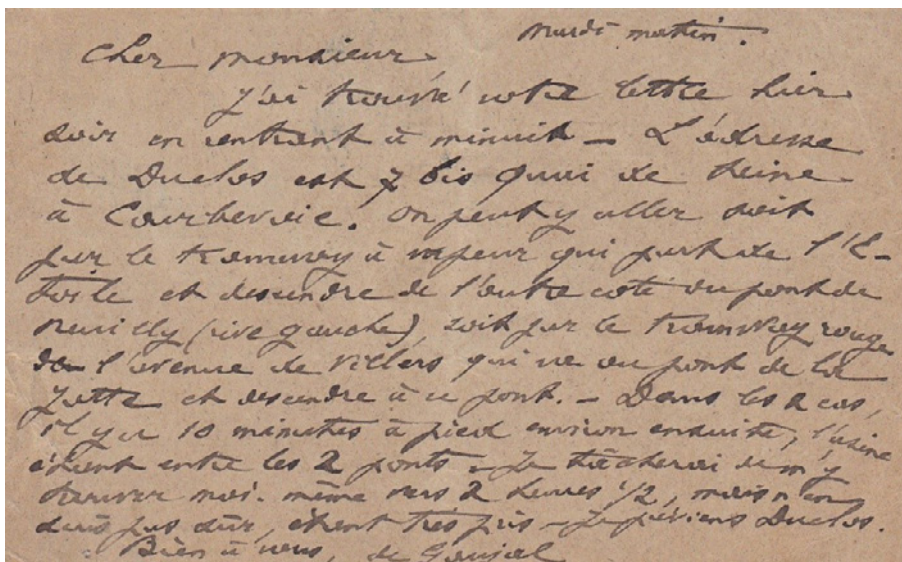 Mardi matin.
Cher monsieur,
J'ai trouvé votre lettre hier
soir en rentrant à minuit — L'adresse
de Duclos est 7 bis quai de Seine
à Courbevoie. On peut y aller soit
par le tramway à vapeur qui part de l'E-
toile et descendre de l'autre côté du pont de
Neuilly (rive gauche), soit par le tramway rouge
de l'avenue de Villiers qui va au pont de la
Jatte et descendre à ce pont. — Dans les 2 cas,
il y a 10 minutes à pied environ ensuite, l'usine
étant entre les 2 ponts — Je tâcherai de m'y
trouver moi-même vers 2 heures 1/2, mais n'en
suis pas sûr, étant très pris — Je préviens Duclos.
Bien à vous, de Goujal